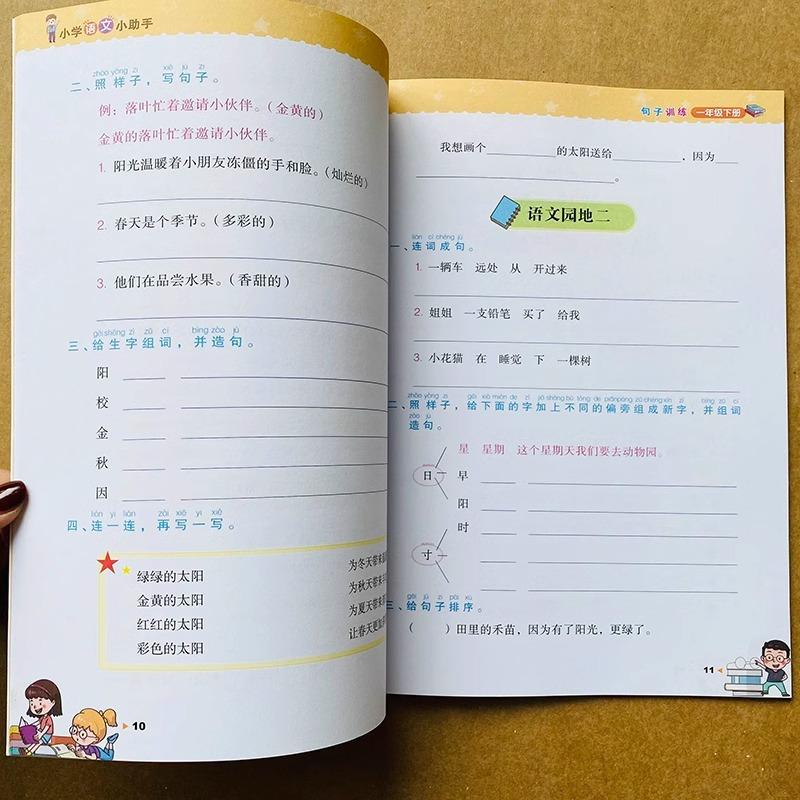 小学语文小助手
zhào yàng zi xiě jù zi
二、照样子，写句子。
例：落叶忙着邀请小伙伴。（金黄的）
金黄的落叶忙着邀请小伙伴。
1. 阳光温暖着小朋友冻僵的手和脸。（灿烂的）
2. 春天是个季节。（多彩的）
3. 他们在品尝水果。（香甜的）
gěi shēng zì zǔ cí bìng zào jù
三、给生字组词，并造句。
阳
校
金
秋
因
lián yi lián zài xiě yi xiě
四、连一连，再写一写。
绿绿的太阳 为冬天带来
金黄的太阳 为秋天带来
红红的太阳 为夏天带来
彩色的太阳 让春天更加
10
句子训练 一年级下册
我想画个 的太阳送给 ，因为
。
语文园地二
lián cí chéng jù
一、连词成句。
1. 一辆车 远处 从 开过来
2. 姐姐 一支铅笔 买了 给我
3. 小花猫 在 睡觉 下 一棵树
二、照样子，给下面的字加上不同的偏旁组成新字，并组词
zào jù
造句。
星 星期 这个星期天我们要去动物园。
日 早
阳
时
寸
gěi jù zi pái xù
三、给句子排序。
（ ）田里的禾苗，因为有了阳光，更绿了。
11